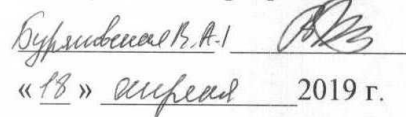 Буряновская В. А.
«18» апреля 2019 г.